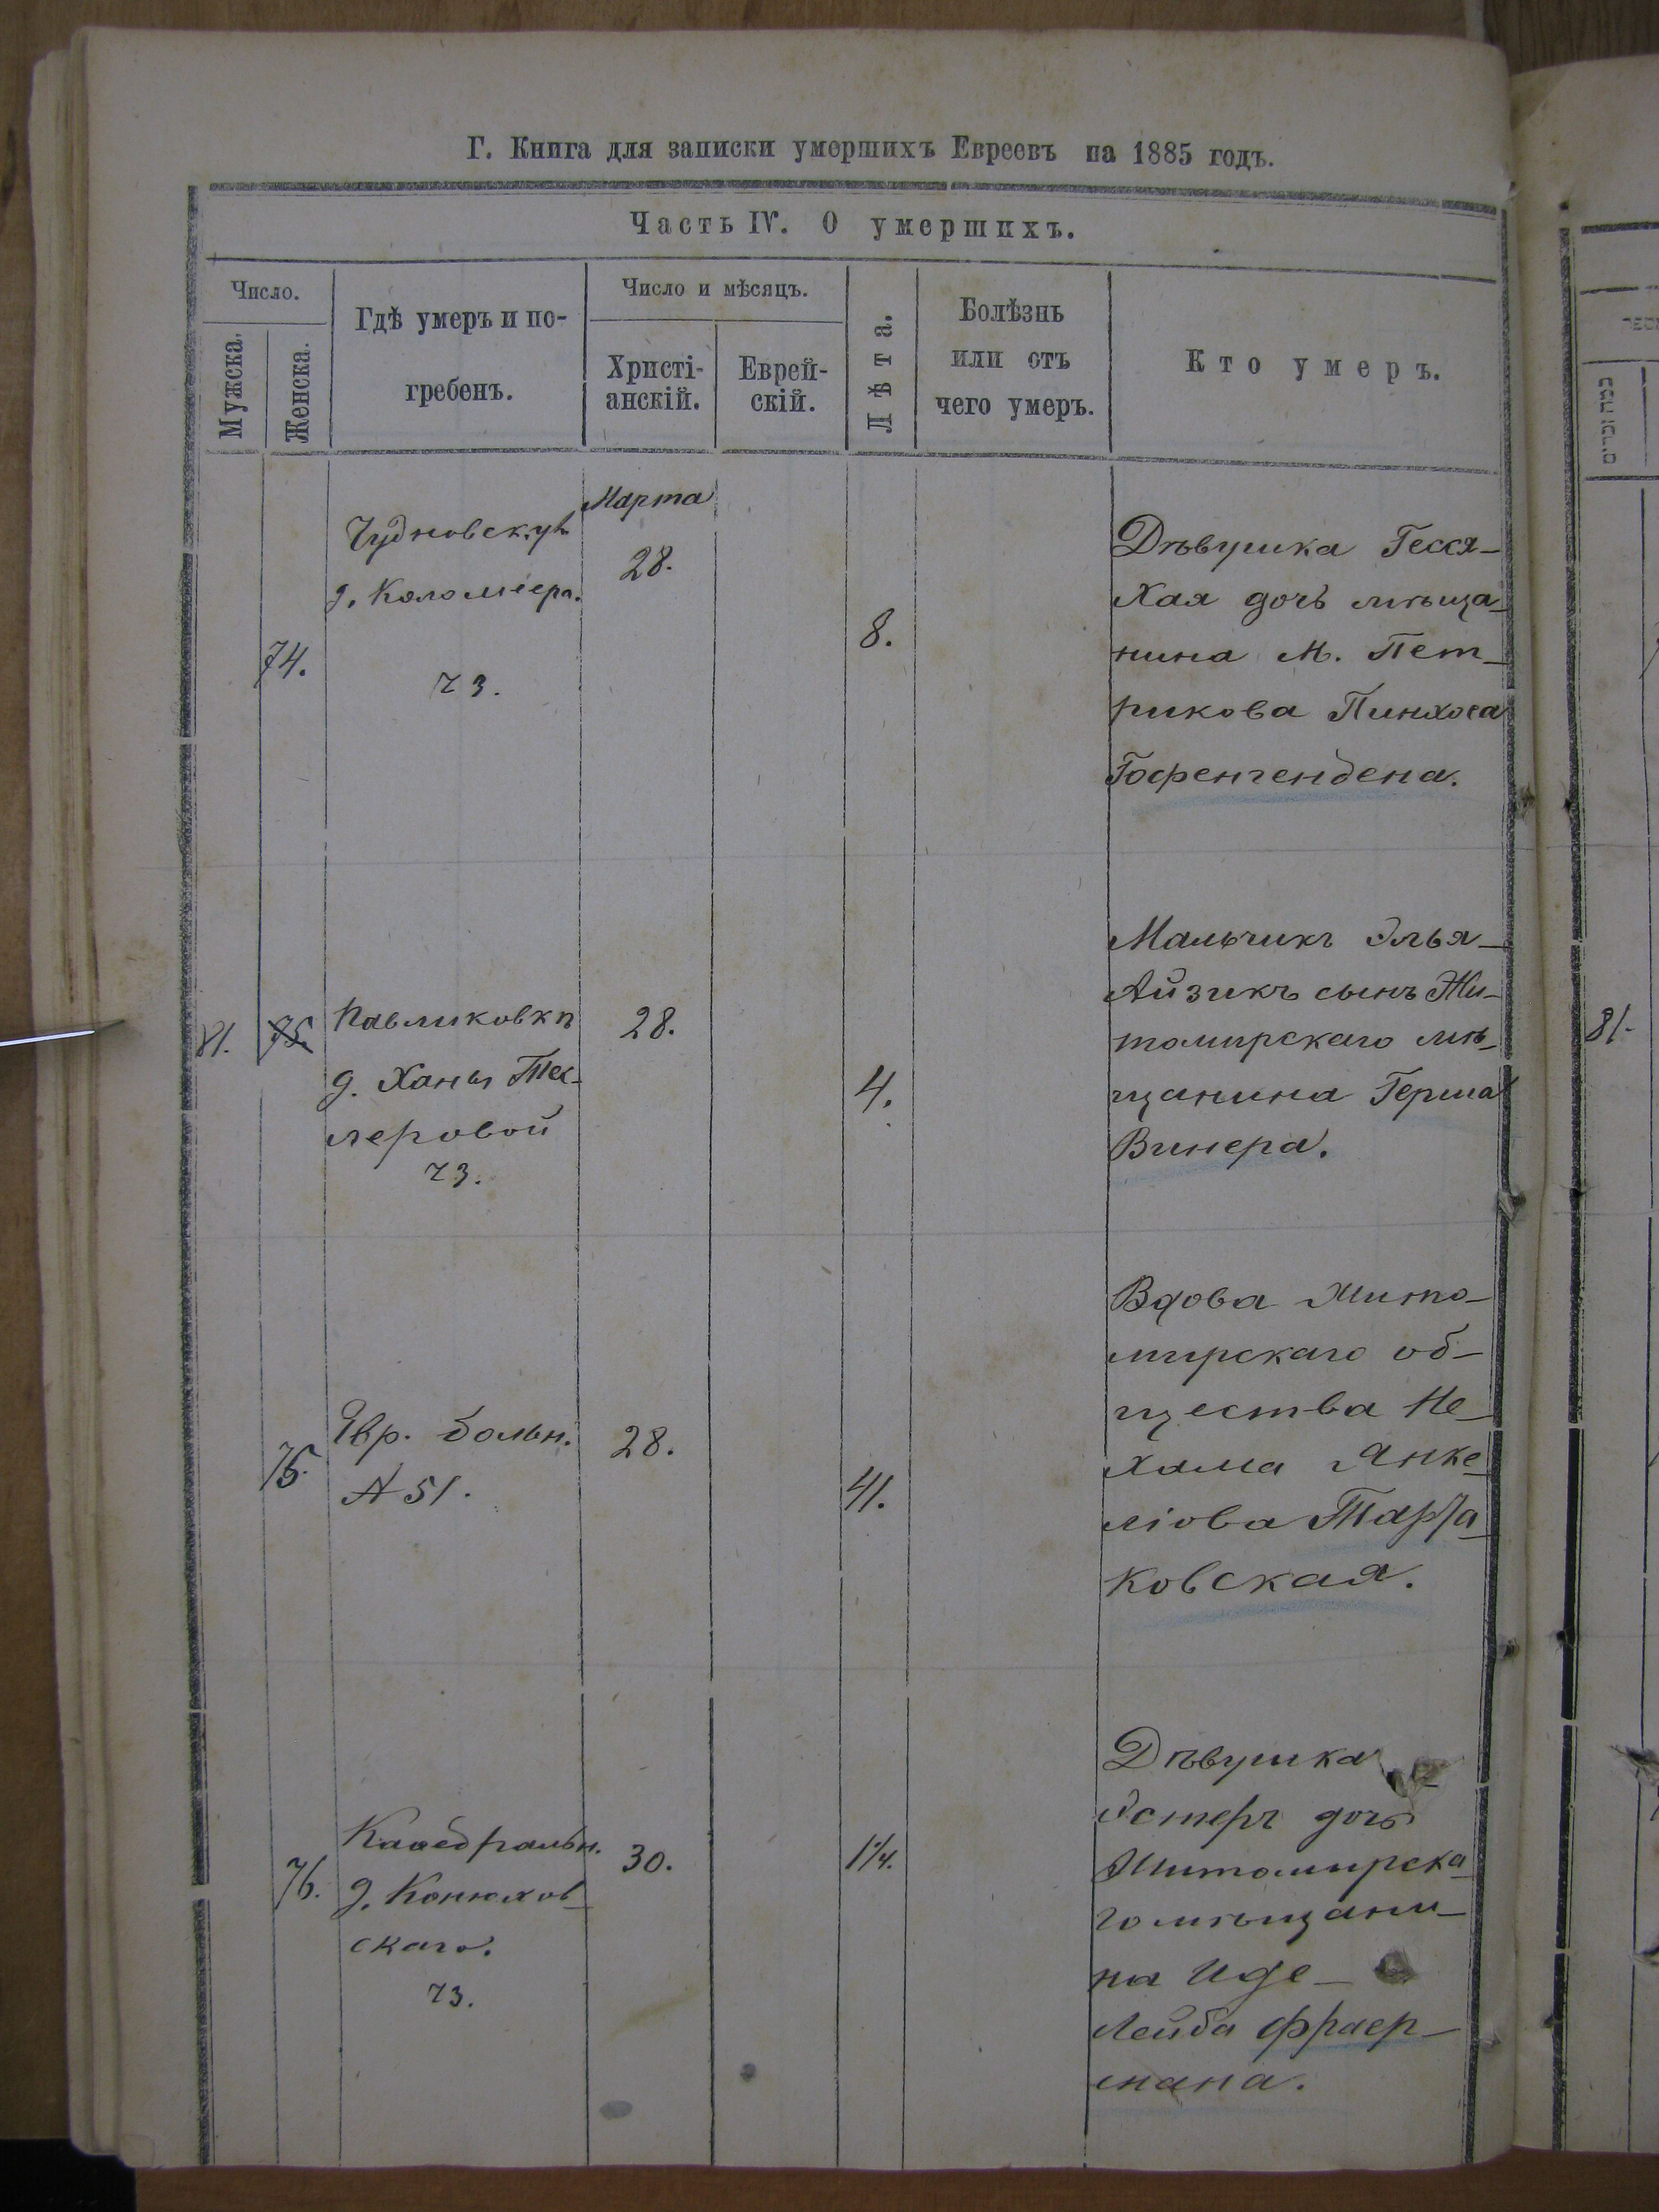 Г. Книга для записки умершихъ Евреевъ на 1885 годъ.
Часть IV. О умершихъ.
Число.
Мужска.
Женска.
Гдѣ умеръ и по-
гребенъ.
Число и мѣсяцъ.
Христі-
анскій.
Еврей-
скій.
Лѣта.
Болѣзнь
или отъ
чего умеръ.
Кто умеръ.
74.
Чудновск. ул.
д. Коломіера.
73.
Марта
28.
8.
Дѣвушка Гесся-
Хая дочь мѣща-
нина М. Пет-
рикова Пинхоса
Гофенгендена.
81.
75.
Павликовкѣ
д. Ханы Тес-
леровой
73.
28.
4.
Мальчикъ Элья-
Айзикъ сынъ Жи-
томирскаго мѣ-
щанина Герша
Винера.
75.
Евр. больн.
51.
28.
41.
Вдова Жито-
мирскаго об-
щества Не-
хама Янке-
ліова
ковская.
76.
Каѳедральн.
д. Конюхов-
скаго.
73.
30.
1 1/4.
Дѣвушка
Эстеръ дочь
Житомирска-
го мѣщани-
на Иде-
Лейба Фраер-
мана.
81.